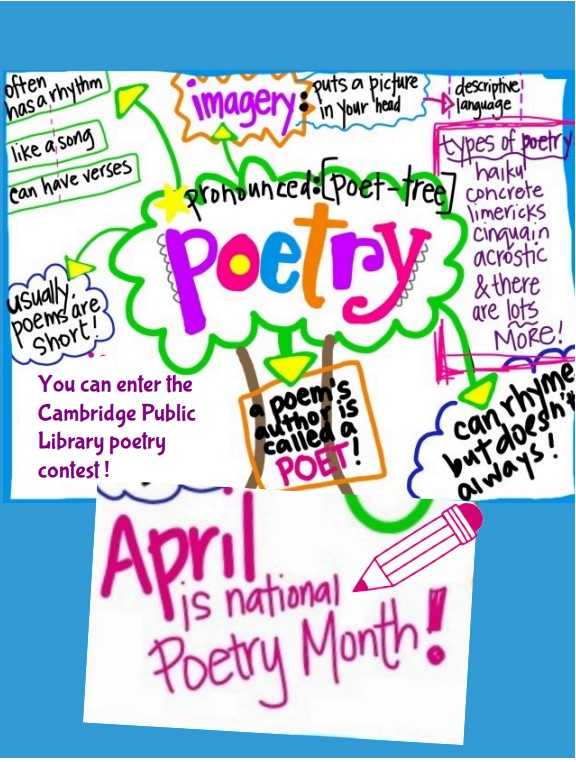 often
has a rhythm
like a song
can have verses
imagery:
puts a picture
in your head
descriptive
language
types of poetry
haiku
concrete
limericks
cinquain
acrostic
& there
are lots
MORE!
pronounced:[poet-tree]
poetry
usually,
poems are
short!
You can enter the
Cambridge Public
Library poetry
contest !
a poem's
author is
called a
POET!
can rhyme
but doesn't
always!
April
is national
Poetry Month!